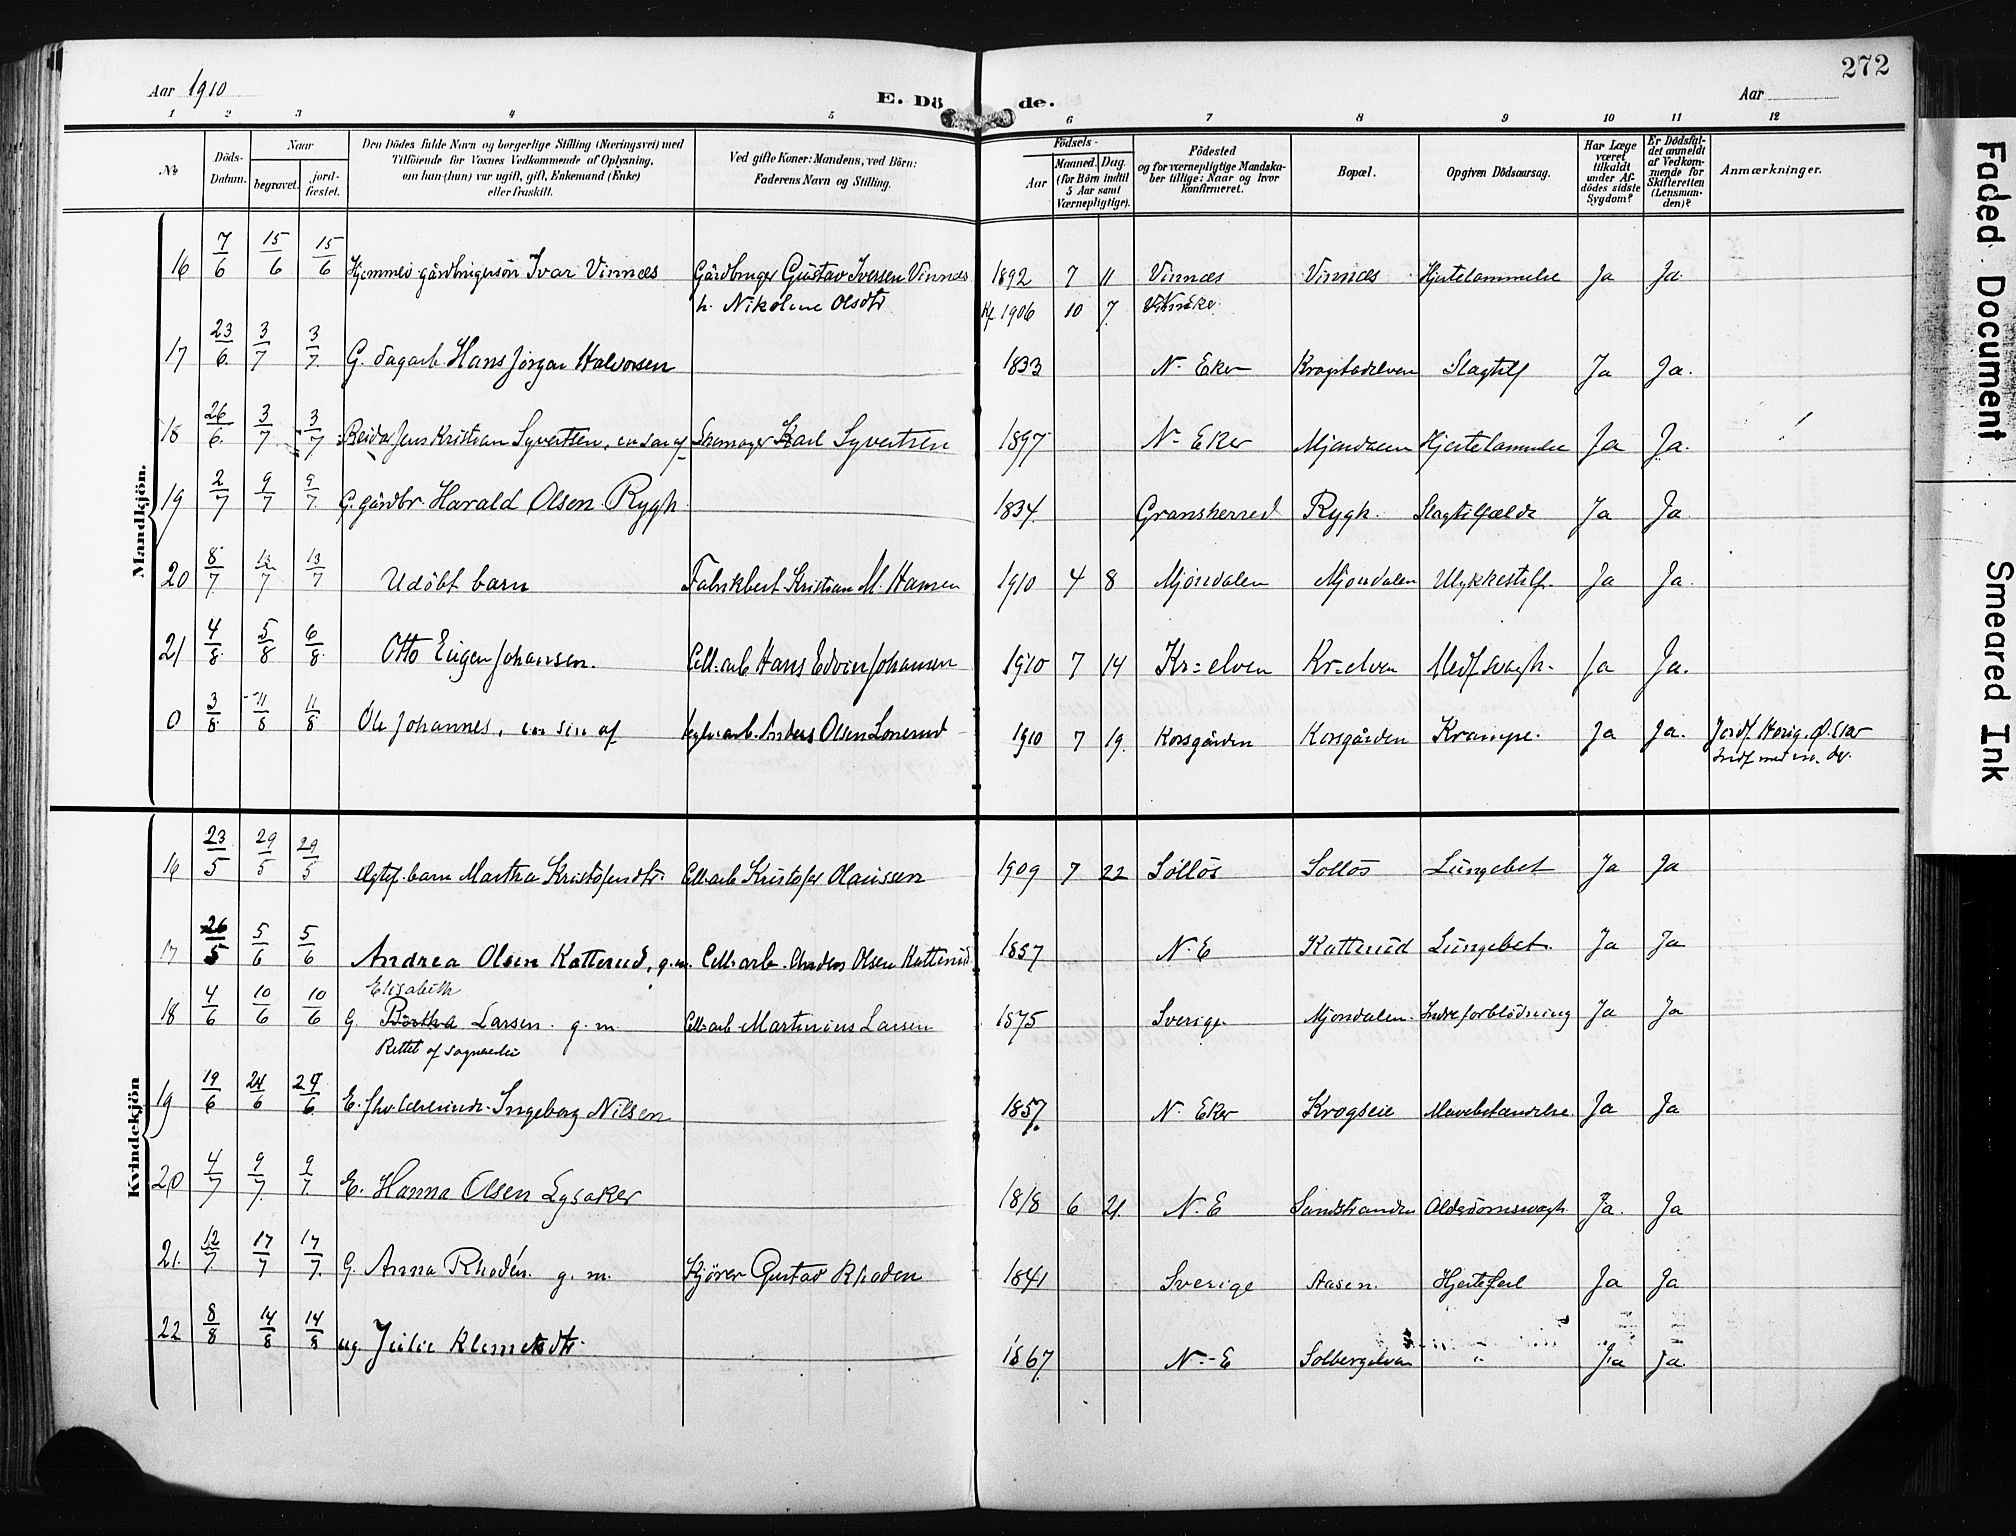 272
Aar 1910
E. Dö de.
Aar
1 2 3 4 5 6 7 8 9 10 11 12
No.
Döds-Datum.
Naar
begravet.
jord-fæstet.
Den Dödes fulde Navn og borgerlige Stilling (Næringsvei) med
Tilföiende for Voxnes Vedkommende af Oplysning,
om han (hun) var ugift, gift, Enkemand (Enke)
eller fraskilt.
Ved gifte Koner: Mandens, ved Börn:
Faderens Navn og Stilling.
Födsels-
Aar
Maaned. Dag.
(for Börn indtil
5 Aar samt
Værnepligtige).
Födested
og for værnepligtige Mandska-
ber tillige: Naar og hvor
konfirmeret.
Bopæl.
Opgiven Dödsaarsag.
Har Læge
været
tilkaldt
under Af-
dödes sidste
Sygdom?
Er Dödsfal-
det anmeldt
af Vedkom-
mende for
Skifteretten
(Lensman-
den)?
Anmærkninger.
Mandkjön.
16 7/6 15/6 15/6 Hjemmev. gårdbrugersøn Ivar Vinnæs Gårdbruger Gustav Iversen Vinnæs 1892 7 11 Vinnæs Vinnæs Hjertelammelse Ja Ja.
h. Nikoline Olsdtr Kf 1906 10 7
17 23/6 3/7 3/7 G. dagarb Hans Jørgen Halvorsen 1833 N. Eker Krogstadelven Slagtilf Ja Ja.
18 26/6 3/7 3/7 Reidar Jens Kristian Syvertsen, en søn af Skomager Karl Syvertsen 1897 N. Eker Mjøndalen Hjertelammelse Ja Ja.
19 2/7 9/7 9/7 G. gårdbr Harald Olsen Rygh 1834 Gransherred Rygh. Slagtilfælde Ja Ja
20 8/7 13/7 13/7 Udøbt barn Fabrikbest Kristian M. Hansen 1910 4 8 Mjøndalen Mjøndalen Ulykkestilf. Ja Ja.
21 4/8 5/8 6/8 Otto Eugen Johansen. Cell.arb Hans Edvin Johansen 1910 7 14 Kr=elven Kr=elven Medf svagh. Ja Ja.
0 3/8 11/8 11/8 Ole Johannes, en søn af Anders Olsen Lonerud 1910 7 19. Korsgården Korsgården Krampe. Ja Ja.
Kvindekjön
16 23/5 29/5 29/5 Ægtef. barn Martha Kristofersdtr. Cell.arb Kristofer Olaussen 1909 7 22 Solløs Solløs Lungebet Ja Ja
17 26/5 5/6 5/6 Andrea Olsen Katterud, g.m. Cell.arb. Anders Olsen Katterud 1857 N. E Katterud Lungebet. Ja Ja
Elisabeth
18 4/6 10/6 10/6 G. Bertha Larsen. g. m. Cell.arb Martinius Larsen 1875 Sverige Mjøndalen. Indre forblødning Ja Ja
Rettet af sogneprest
19 19/6 24/6 24/6 E. Ingeborg Nilsen 1857. N. Eker Krogseie Mavebetændelse. Ja Ja
20 4/7 9/7 9/7 E. Hanna Olsen Lysaker 1818 6 21. N. E Sundstranden Alderdomssvagh. Ja. Ja
21. 12/7 17/7 17/7 G. Anna Rhodén. g. m. Kjører Gustav Rhoden 1841 Sverige Aasen. Hjertefeil Ja Ja
22 8/8 14/8 14/8 ug. Julie Klemetsdtr. 1867 N. E Solbergelven " Ja Ja.
Faded Document
Smeared Ink